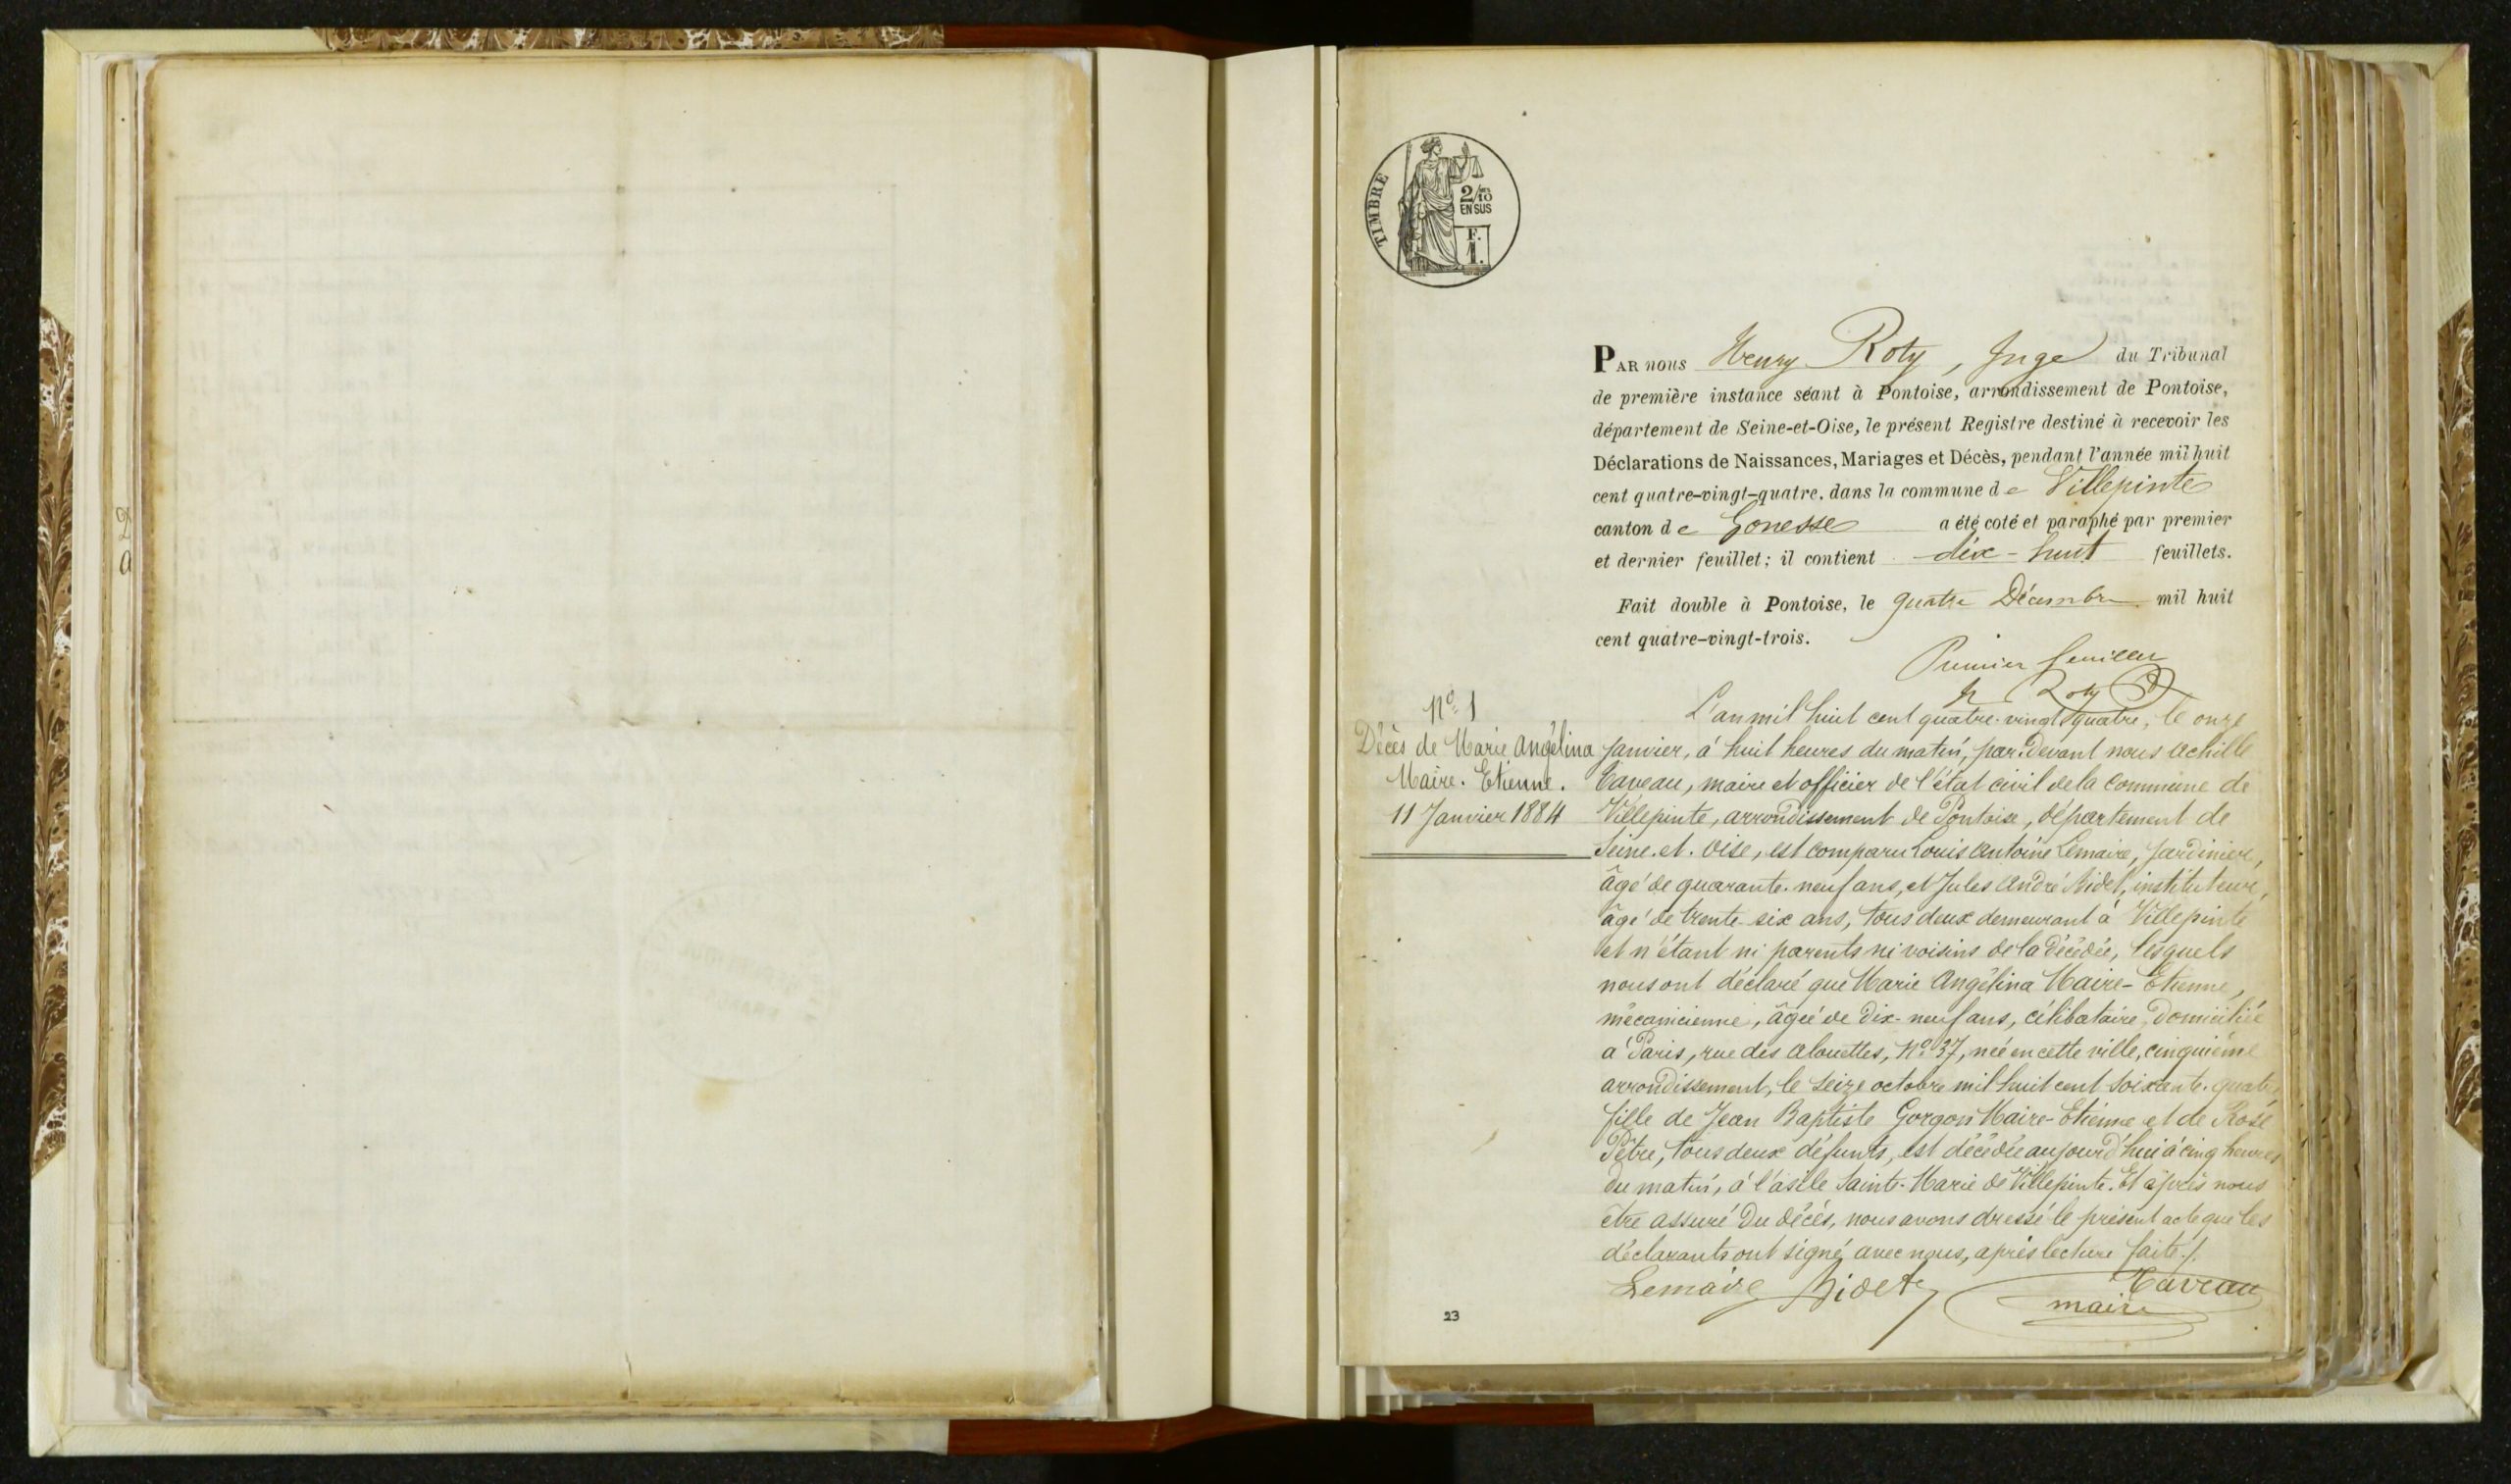 2
a
TIMBRE
2/10
EN SUS
F.
1.
PAR nous Henry Roty, Juge du Tribunal
de première instance séant à Pontoise, arrondissement de Pontoise,
département de Seine-et-Oise, le présent Registre destiné à recevoir les
Déclarations de Naissances, Mariages et Décès, pendant l'année mil huit
cent quatre-vingt-quatre, dans la commune de Villepinte
canton de Gonesse a été coté et paraphé par premier
et dernier feuillet; il contient dix-huit feuillets.
Fait double à Pontoise, le quatre Décembre mil huit
cent quatre-vingt-trois.
Premier feuillet
H Roty
No. 1
Décès de Marie Angélina
Maire-Etienne.
11 Janvier 1884
L'an mil huit cent quatre-vingt-quatre, le onze
janvier, à huit heures du matin, par-devant nous Achille
Taveau, maire et officier de l'état civil de la commune de
Villepinte, arrondissement de Pontoise, département de
Seine-et-Oise, est comparu Louis Antoine Lemaire, jardinier,
âgé de quarante-neuf ans, et Jules André Bidet, instituteur,
âgé de trente-six ans, tous deux demeurant à Villepinte
et n'étant ni parents ni voisins de la décédée, lesquels
nous ont déclaré que Marie Angélina Maire-Etienne,
mécanicienne, âgée de dix-neuf ans, célibataire, domiciliée
à Paris, rue des Alouettes, No. 37, née en cette ville, cinquième
arrondissement, le seize octobre mil huit cent soixante-quatre,
fille de Jean Baptiste Gorgon Maire-Etienne et de Rose
Pètre, tous deux défunts, est décédée aujourd'hui à cinq heures
du matin, à l'asile Sainte-Marie de Villepinte. Et après nous
être assuré du décès, nous avons dressé le présent acte que les
déclarants ont signé avec nous, après lecture faite./.
Lemaire Bidet Taveau
maire
23